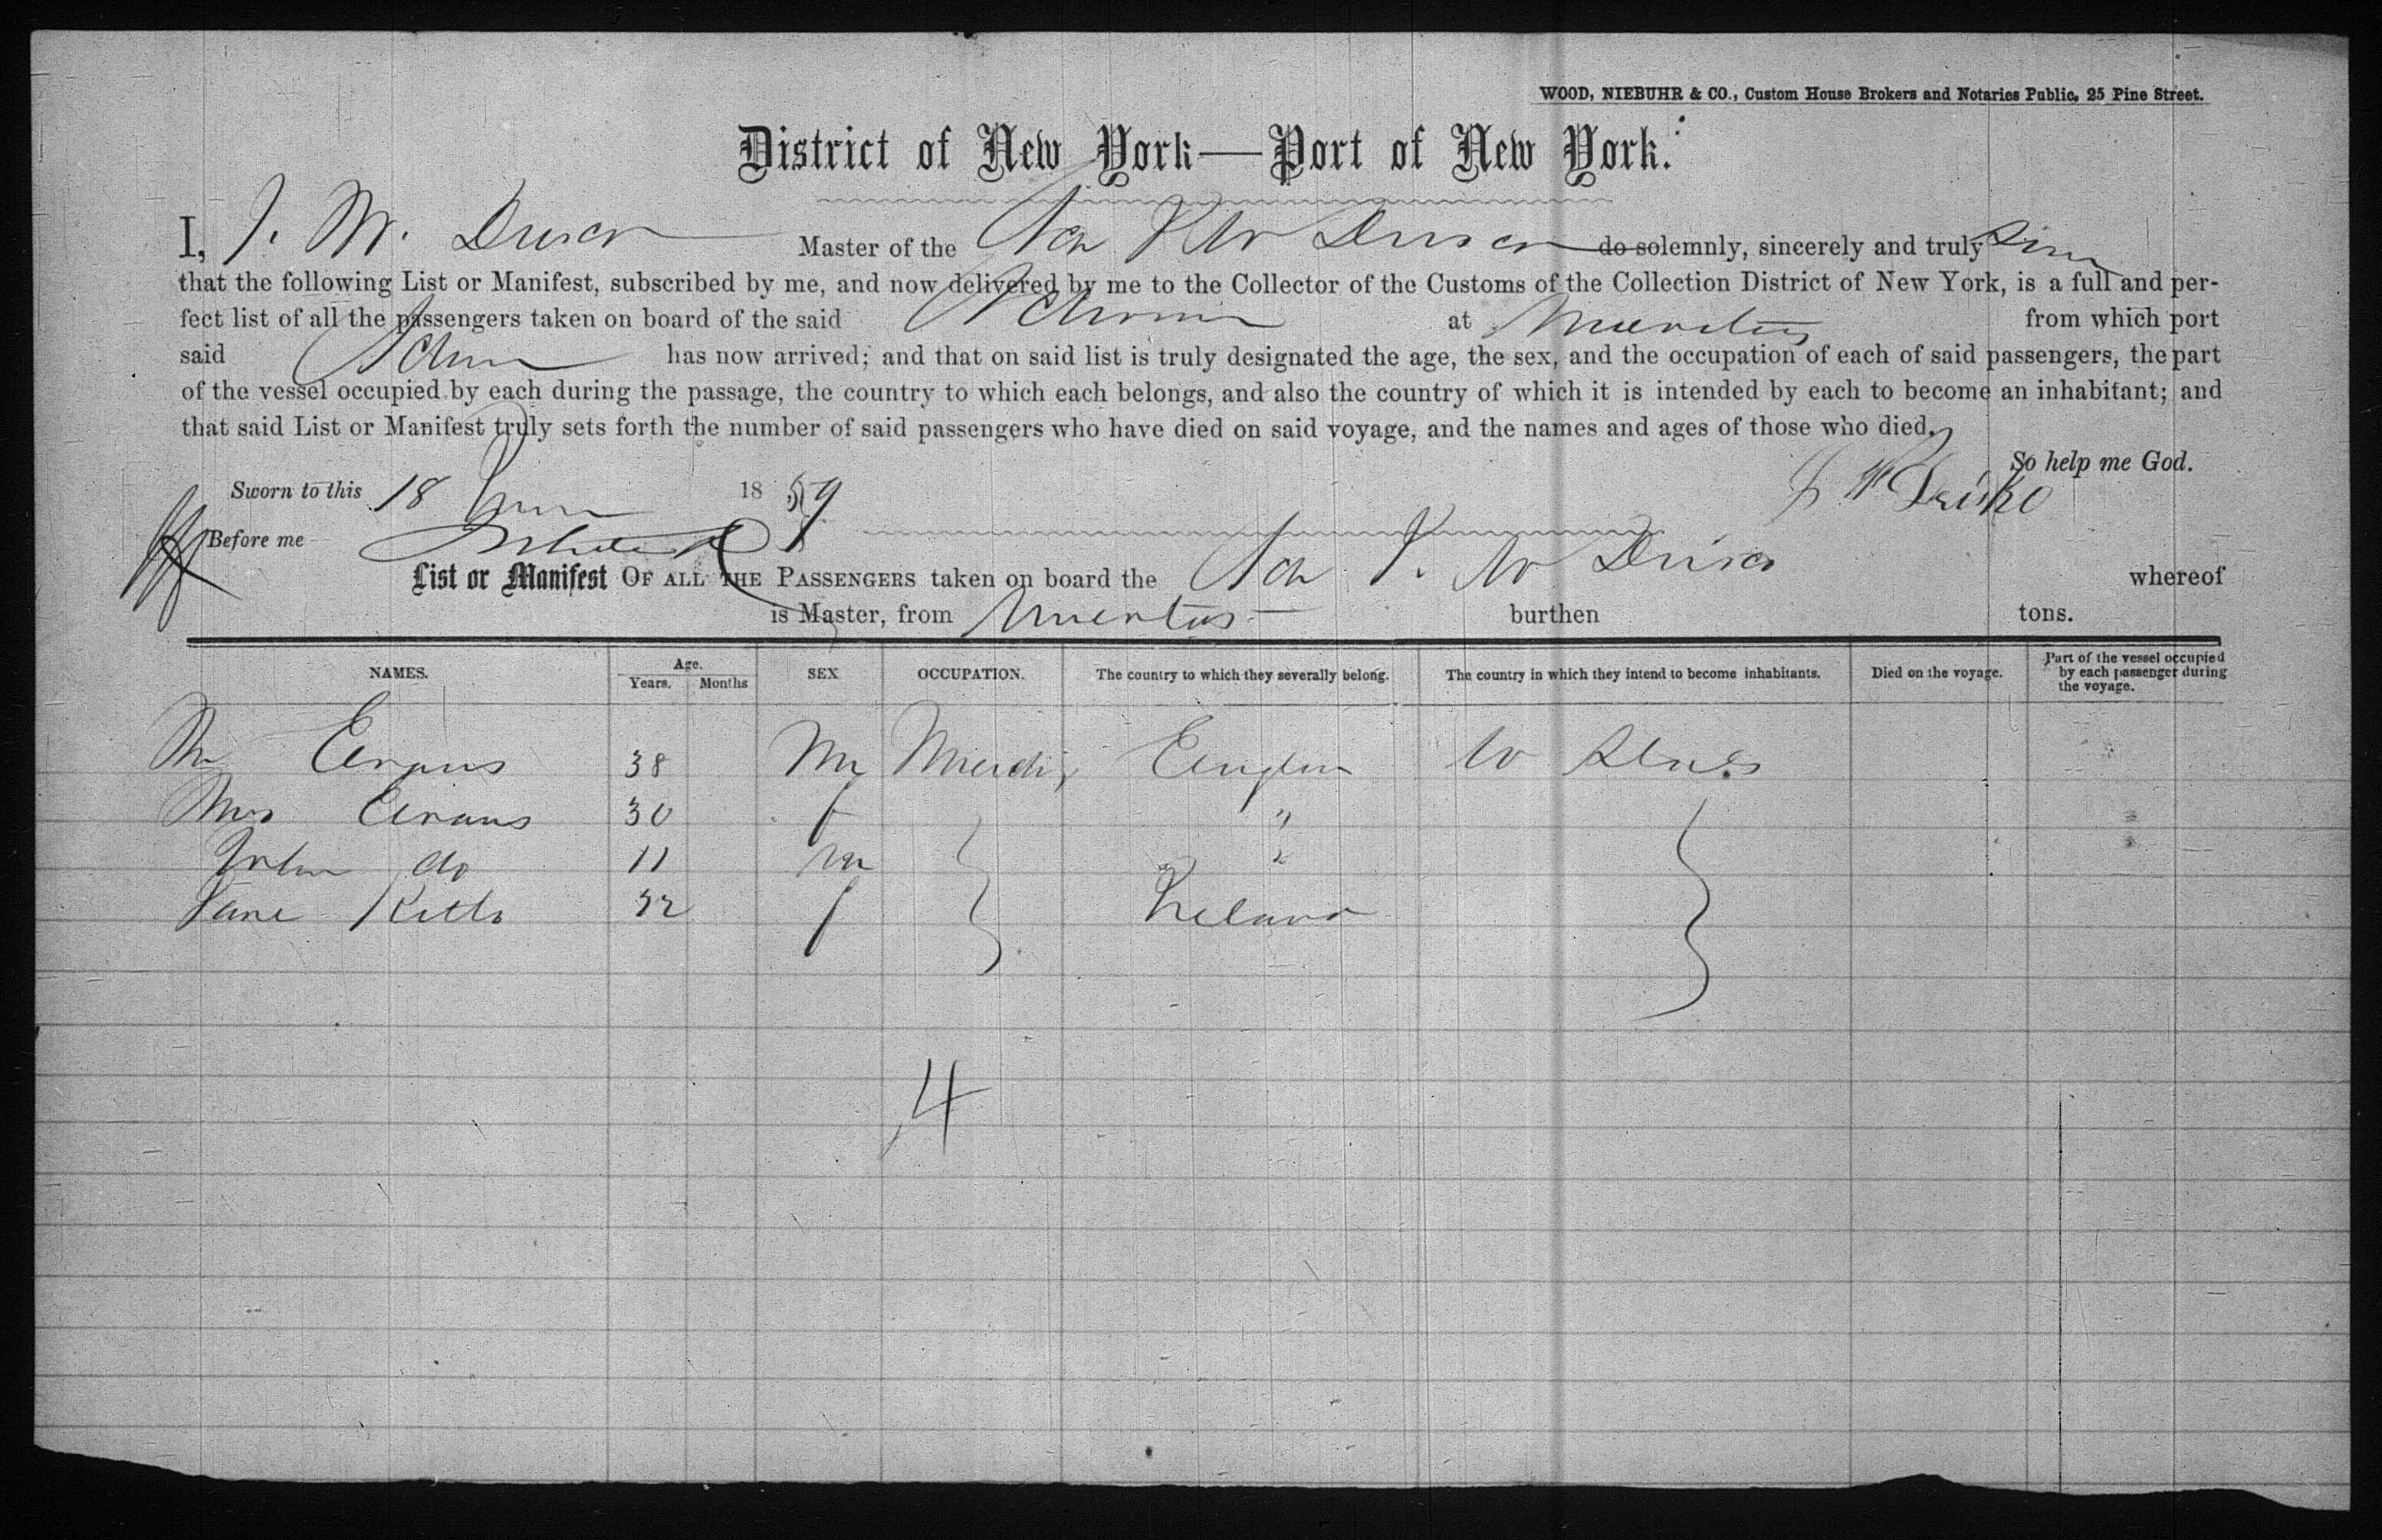 WOOD, NIEBUHR & CO., Custom House Brokers and Notaries Public, 25 Pine Street.
District of New York—Port of New York.
I, J. W. Drisco Master of the Sch J W Drisco do solemnly, sincerely and truly
that the following List or Manifest, subscribed by me, and now delivered by me to the Collector of the Customs of the Collection District of New York, is a full and per-
fect list of all the passengers taken on board of the said Schooner at from which port
said Schr has now arrived; and that on said list is truly designated the age, the sex, and the occupation of each of said passengers, the part
of the vessel occupied by each during the passage, the country to which each belongs, and also the country of which it is intended by each to become an inhabitant; and
that said List or Manifest truly sets forth the number of said passengers who have died on said voyage, and the names and ages of those who died.
So help me God.
Sworn to this 18 1859 J W Drisko
Before me
List or Manifest OF ALL THE PASSENGERS taken on board the Sch J. W Drisco whereof
is Master, from burthen tons.
NAMES. Age. Years. Months SEX OCCUPATION. The country to which they severally belong. The country in which they intend to become inhabitants. Died on the voyage. Part of the vessel occupied by each passenger during the voyage.
Mr Evans 38 M Englan U States
Mrs Evans 30 f "
John do 11 m "
Jane 32 f Ireland
4